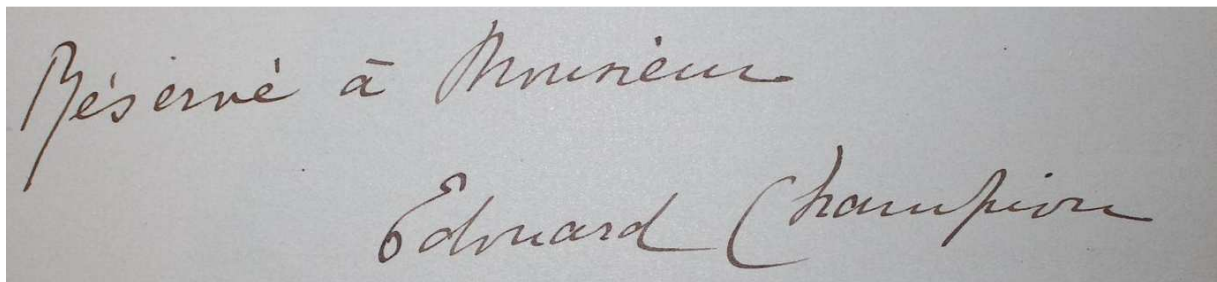 Réservé à Monsieur
Edouard Champion